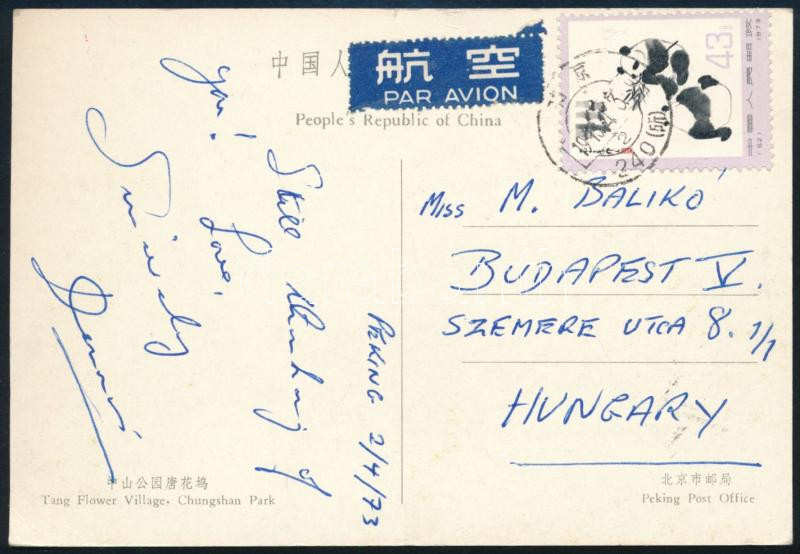 中国人
航空
PAR AVION
People's Republic of China
43
1973
中国人民邮政
240(所)
PEKING 2/4/73
Still thinking of
you!
Love,
Sincerely
MISS M. BALIKÓ
BUDAPEST V.
SZEMERE UTCA 8. 1/1
HUNGARY
中山公园唐花坞
Tang Flower Village, Chungshan Park
北京市邮局
Peking Post Office